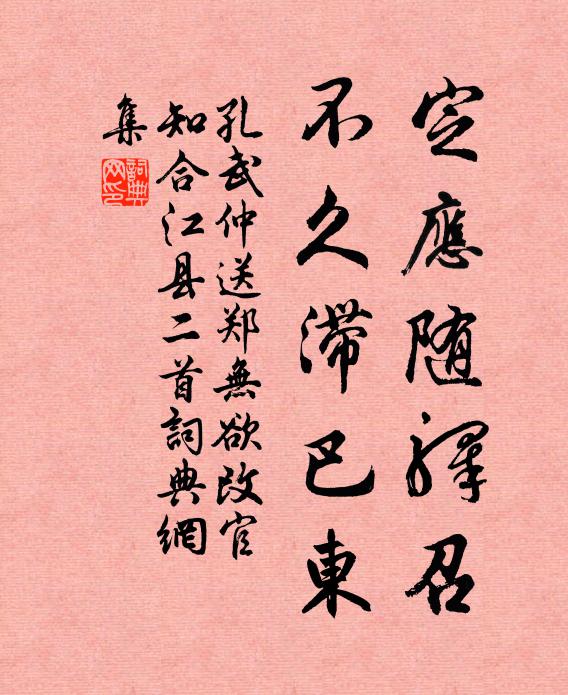 定應随驛召
不久滞巴東
孔武仲送郑無欲改官
知合江县二首詞典網
集
詞典
网印